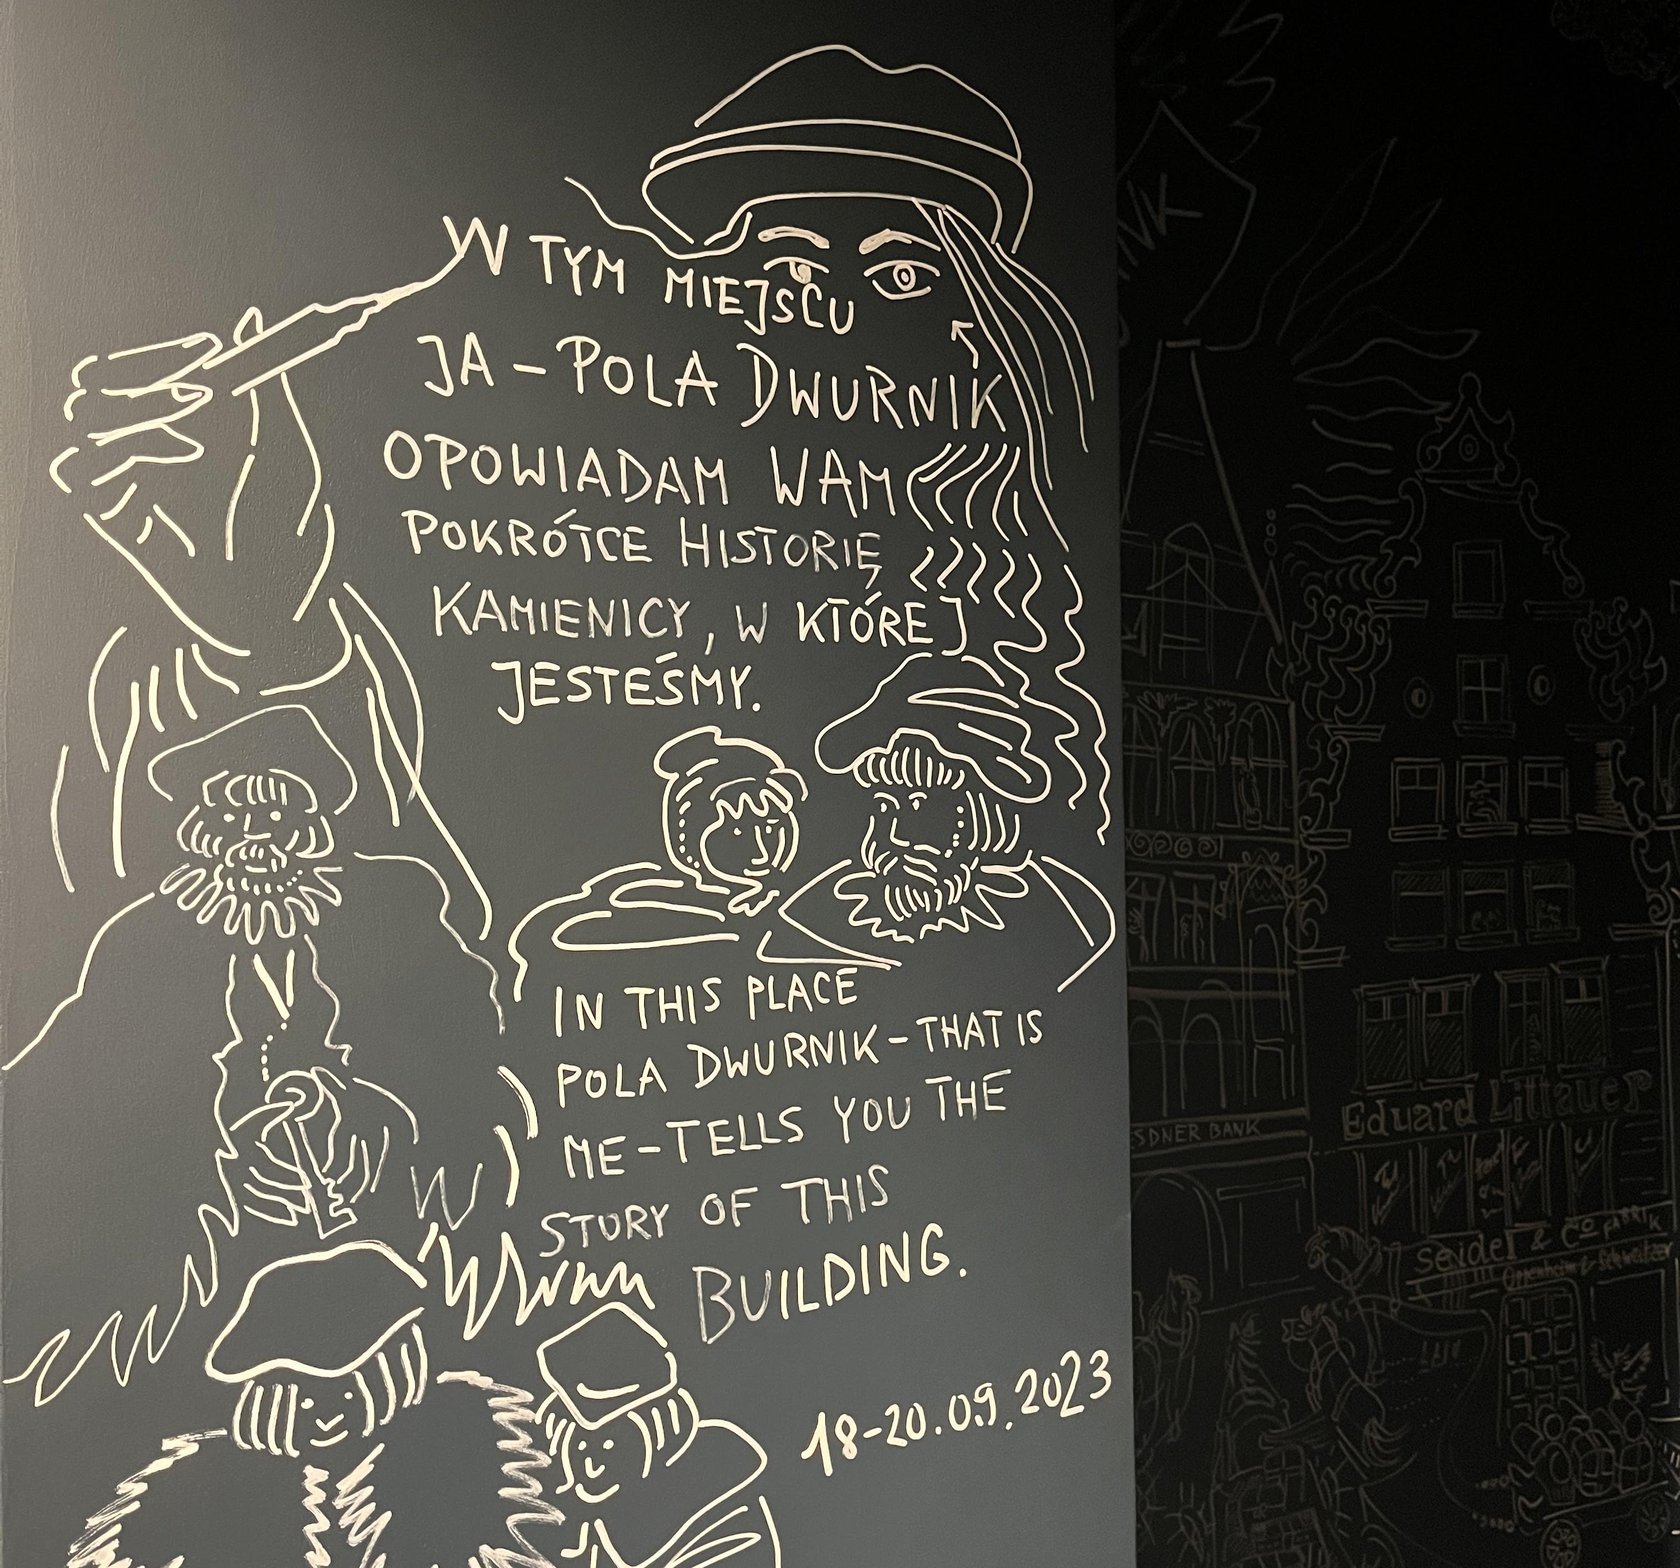 W TYM MIEJSCU
JA - POLA DWURNIK
OPOWIADAM WAM
POKRÓTCE HISTORIĘ
KAMIENICY, W KTÓREJ
JESTEŚMY.
IN THIS PLACE
POLA DWURNIK - THAT IS
ME - TELLS YOU THE
STORY OF THIS
BUILDING.
18-20.09.2023
SDNER BANK
Eduard Littauer
Seidel & Co